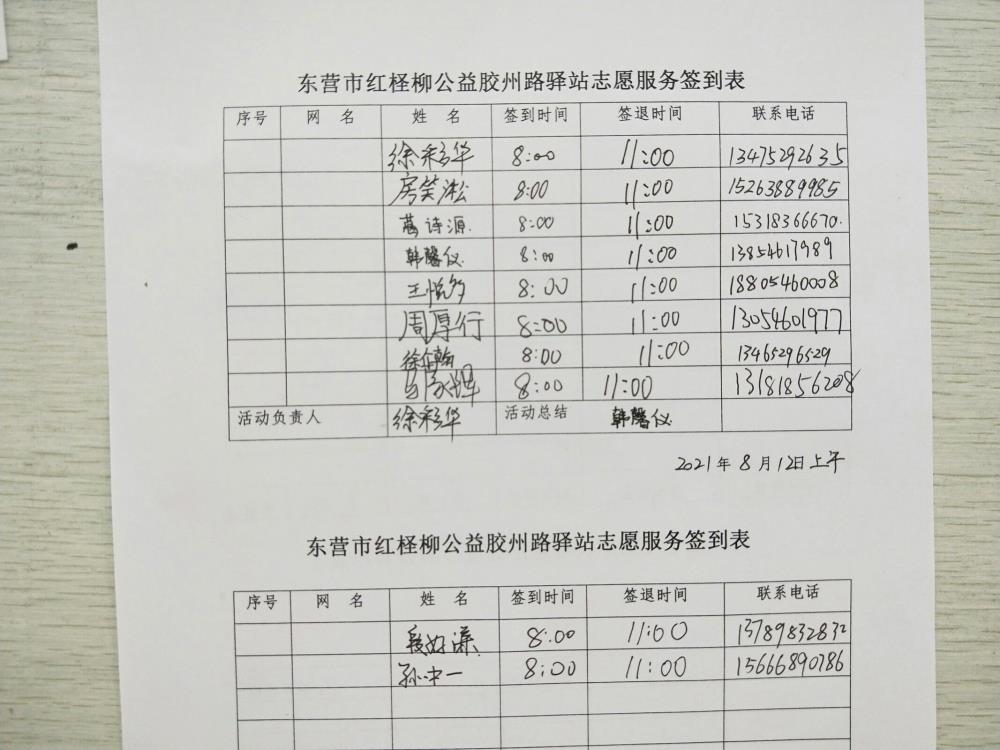 东营市红柽柳公益胶州路驿站志愿服务签到表
序号 网 名 姓 名 签到时间 签退时间 联系电话
徐彩华 8:00 11:00 13475292635
房笑淞 8:00 11:00 15263889985
葛诗源 8:00 11:00 15318366670.
韩馨仪 8:00 11:00 13854617989
王悦多 8:00 11:00 18805460008
周厚行 8:00 11:00 13054601977
8:00 11:00 13465296529
8:00 11:00 13181856208
活动负责人 徐彩华 活动总结 韩馨仪
2021年 8 月 12日上午
东营市红柽柳公益胶州路驿站志愿服务签到表
序号 网 名 姓 名 签到时间 签退时间 联系电话
8:00 11:00 13789832832
孙中一 8:00 11:00 15666890786